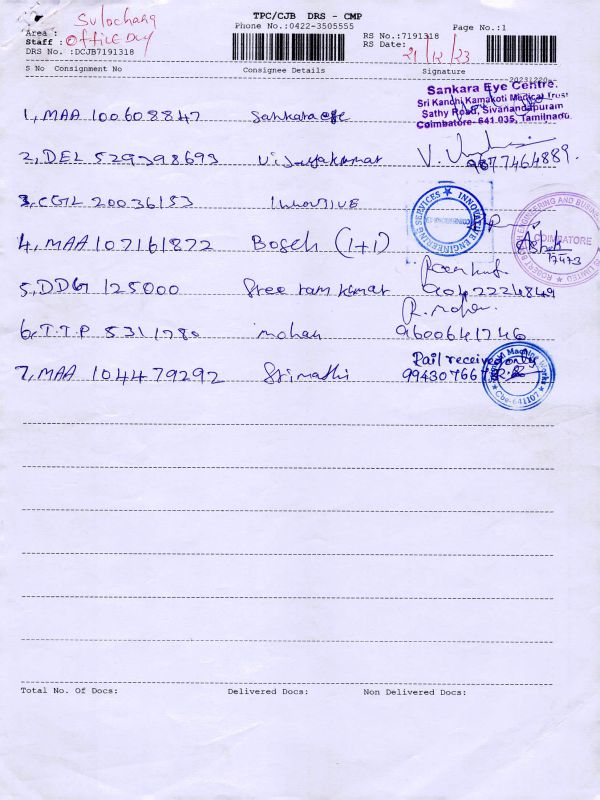 TPC/CJB DRS - CMP
Phone No.:0422-3505555
Page No.:1
Sulochana
Area :
Staff : Office Day
DRS No. :DCJB7191318
RS No.:7191318
RS Date: 21/12/23
S No Consignment No Consignee Details Signature
20231220
Sankara Eye Centre.
Sri Kanchi Kamakoti Medical Trust
Sathy Road, Sivanandapuram
Coimbatore- 641 035, Tamilnadu
1, MAA 100608847 Sankara eye
2, DEL 529398693 Vijayakumar V. 9877464889.
3, CGL 20036153 Innovative
INNOVATIVE ENGINEERING SERVICES
4, MAA 107161872 Bosch (1+1) Ashok
ENGINEERING AND BUSINE
COIMBATORE
LIMITED
17473
5, DDG 125000 Sree ram kumar 9042224849
R. mohan
6, T.T.P 5311780 mohan 9600641746
Rail received only
7, MAA 104479292 Srimathi 994307667
Cbe-641107
Total No. Of Docs: Delivered Docs: Non Delivered Docs: